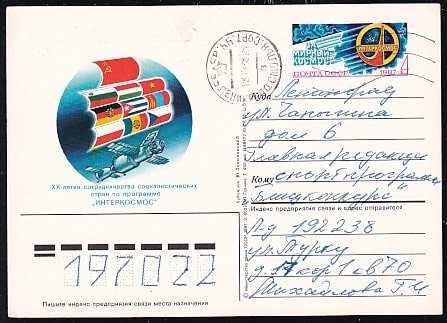 ЗА МИРНЫЙ
КОСМОС
ИНТЕРКОСМОС
ПОЧТА СССР 1987 4
Куда Ленинград
ул. Чапыгина
дом 6
Главная редакция
Кому спорт. программ
Блицконкурс"
Индекс предприятия связи и адрес отправителя
Л-д 192238
ул. Турку
д. 17 кор 1 кв 70
Михайлова Г.И
XX-летие сотрудничества социалистических
стран по программе
„ИНТЕРКОСМОС"
197022
Пишите индекс предприятия связи места назначения